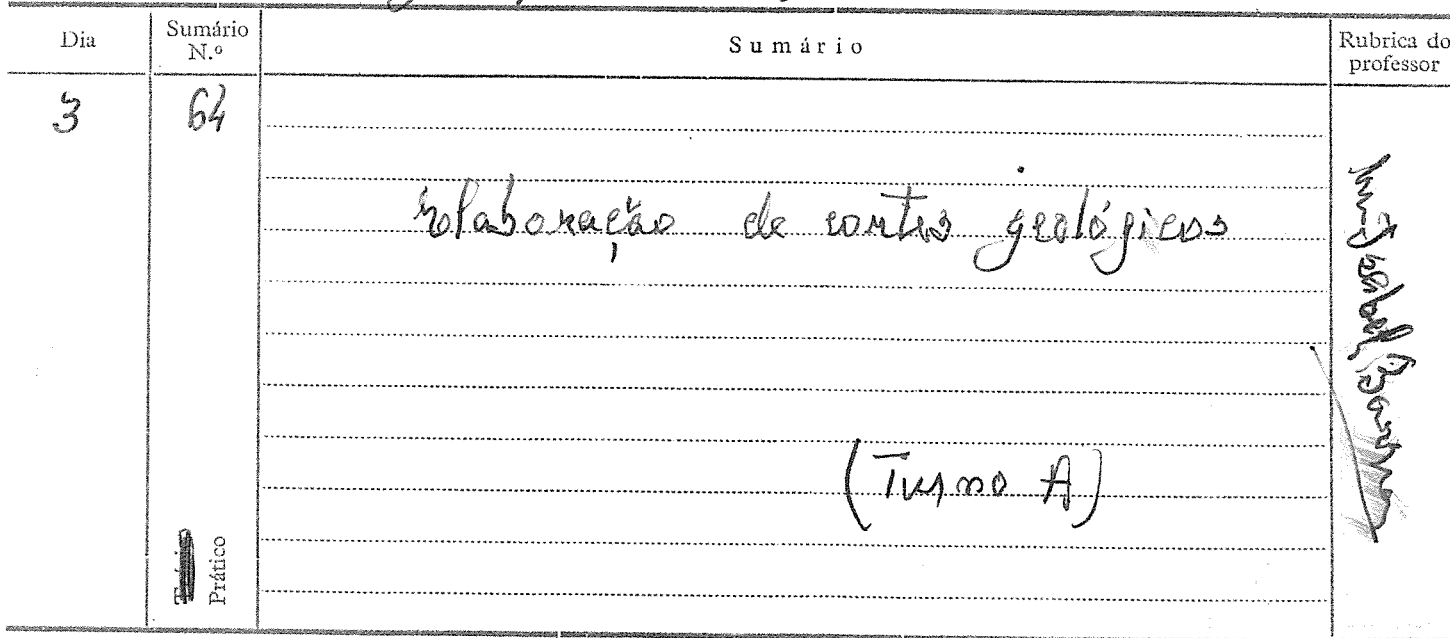 Dia
Sumário N.º
Sumário
Rubrica do professor
3
64
Elaboração de cortes geológicos
(Turno A)
Prático